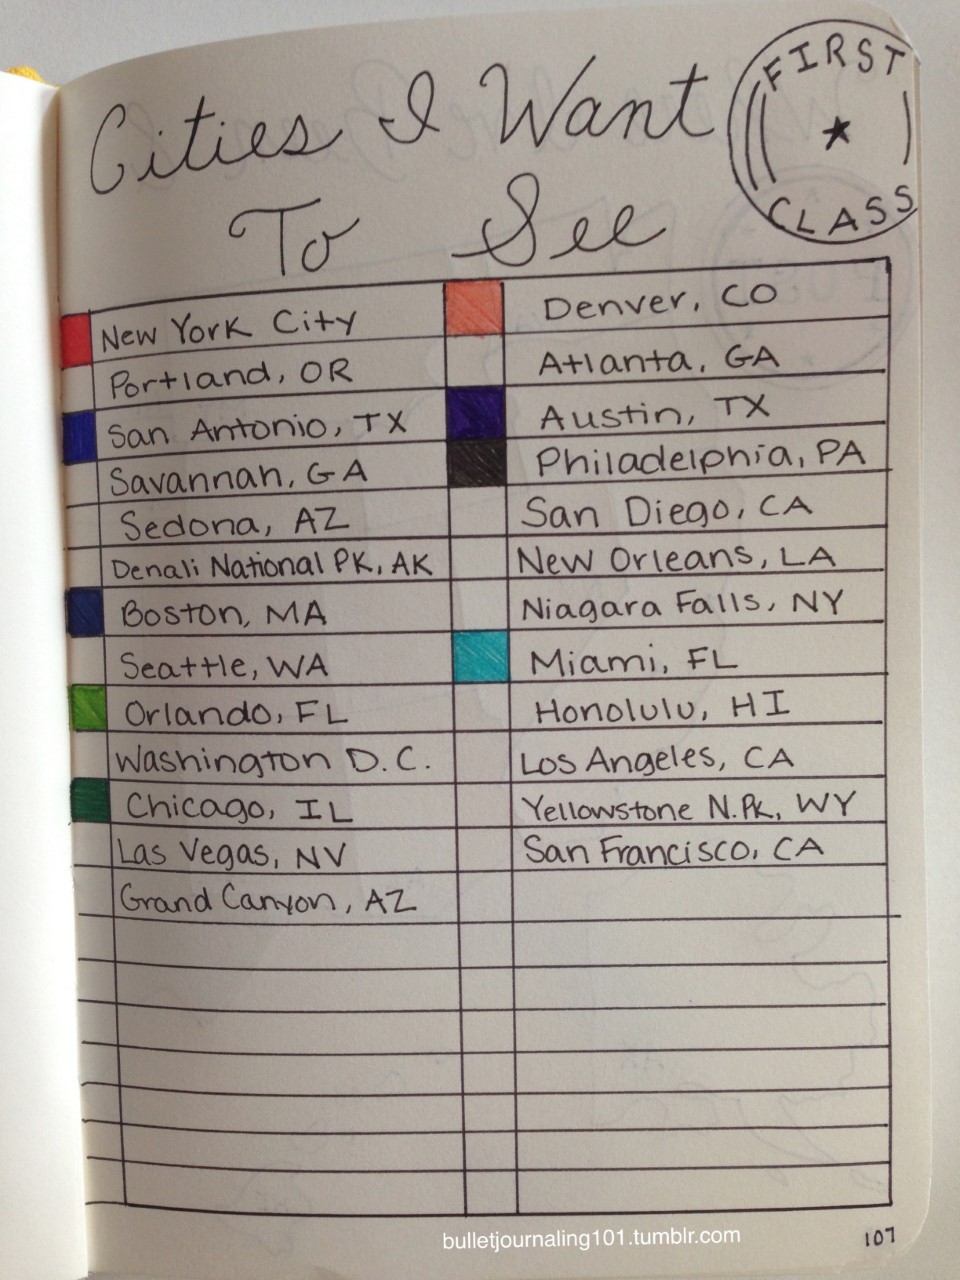 Cities I Want
To See
FIRST
CLASS
New York City
Portland, OR
San Antonio, TX
Savannah, GA
Sedona, AZ
Denali National PK, AK
Boston, MA
Seattle, WA
Orlando, FL
Washington D.C.
Chicago, IL
Las Vegas, NV
Grand Canyon, AZ
Denver, CO
Atlanta, GA
Austin, TX
Philadelphia, PA
San Diego, CA
New Orleans, LA
Niagara Falls, NY
Miami, FL
Honolulu, HI
Los Angeles, CA
Yellowstone N.Pk, WY
San Francisco, CA
bulletjournaling101.tumblr.com
107